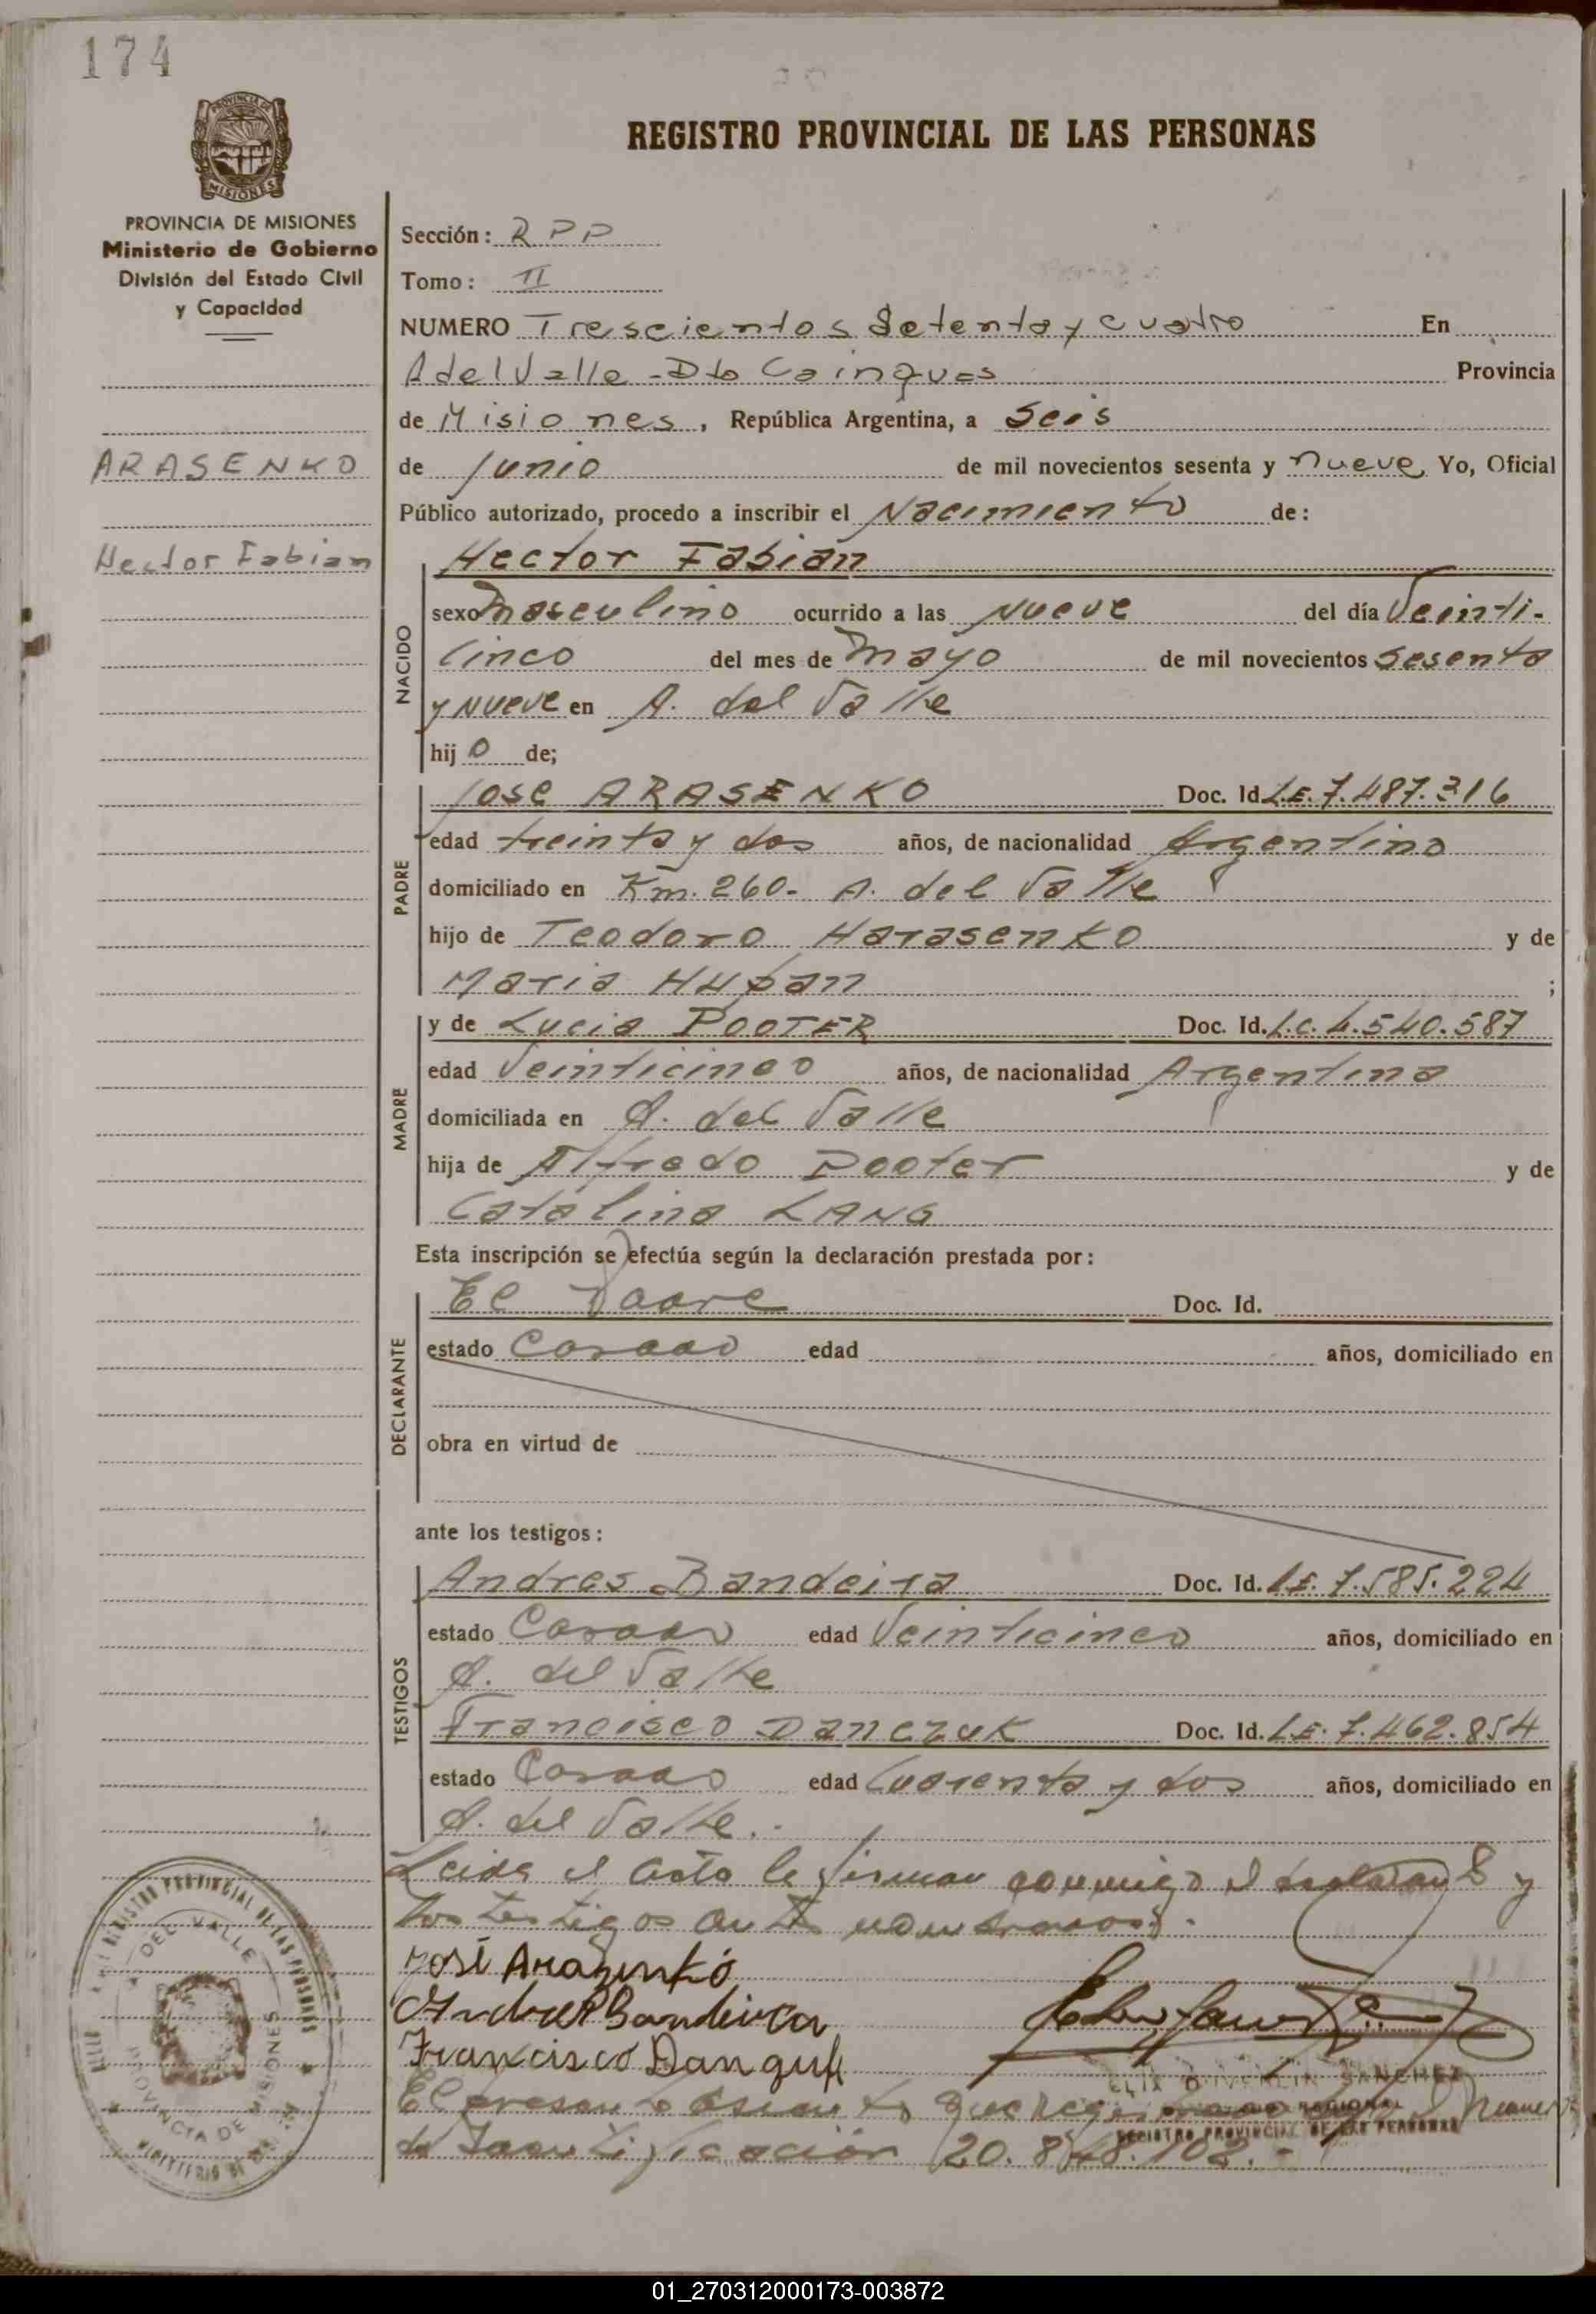 174
PROVINCIA DE MISIONES
Ministerio de Gobierno
División del Estado Civil
y Capacidad
ARASENKO
Hector Fabian
REGISTRO PROVINCIAL DE LAS PERSONAS
Sección: RPP
Tomo: II
NUMERO Trescientos Setenta y cuatro En
A del Valle - Dto Cainguas Provincia
de Misiones, República Argentina, a Seis
de Junio de mil novecientos sesenta y nueve Yo, Oficial
Público autorizado, procedo a inscribir el Nacimiento de:
NACIDO
Hector Fabian
sexo Masculino ocurrido a las Nueve del día Veinti-
cinco del mes de Mayo de mil novecientos Sesenta
y Nueve en A. del Valle
hij o de;
PADRE
Jose ARASENKO Doc. Id. L.E. 7.487.316
edad treinta y dos años, de nacionalidad Argentino
domiciliado en Km. 260- A. del Valle
hijo de Teodoro Harasenko y de
Maria Hupan ;
MADRE
y de Lucia POOTER Doc. Id. L.C. 4.540.587
edad Veinticinco años, de nacionalidad Argentina
domiciliada en A. del Valle
hija de Alfredo Pooter y de
Catalina LANG
Esta inscripción se efectúa según la declaración prestada por:
DECLARANTE
El Padre Doc. Id.
estado Casado edad años, domiciliado en
obra en virtud de
ante los testigos:
TESTIGOS
Andres Bandeira Doc. Id. L.E. 7.585.224
estado Casado edad Veinticinco años, domiciliado en
A. del Valle
Francisco Danczuk Doc. Id. L.E. 7.462.854
estado Casado edad Cuarenta y dos años, domiciliado en
A. del Valle.
Leida el acta la firman conmigo el declarante y
los testigos ante nombrados.
José Arasenko
Andres Bandeira
Francisco Danzuk
SANCHEZ
REGISTRO PROVINCIAL DE LAS PERSONAS
El presente asiento
de Identificación 20.848.102.-
REGISTRO PROVINCIAL DE LAS PERSONAS
A. DEL VALLE
PROVINCIA DE MISIONES
01_270312000173-003872